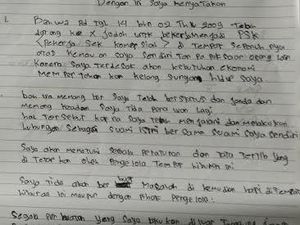 Dengan ini saya menyatakan
1. Bahwa Pd tgl 14 bln 02 Thn 2009 telah
datang ke x Jodoh untk bekerja menjadi PSK
<Pekerja Sek komersial> di Tempat
atas kemauan saya sendiri Tan Pa Paksaan orang lain
Karena saya Terdesak akan kebutuhan ekonomi
mempertahankan kelangsungan hidup saya
bahwa memang bnr saya Telah berstatus dan Janda dan
memang keadaan saya Tida perawan lagi
hal tersebut karna saya telah menjalani dan melakukan
hubungan sebagai suami istri bersama suami saya sendiri
Saya akan mematuhi segala peraturan dan Tata Tertib yang
di Tetapkan oleh Pengelola Tempat hiburan ini
Saya Tida akan ber masalah di kemudian hari di Tempat
hiburan ini maupun dengan Pihak Pengelola.
Segala Per buatan yang saya lakukan di luar